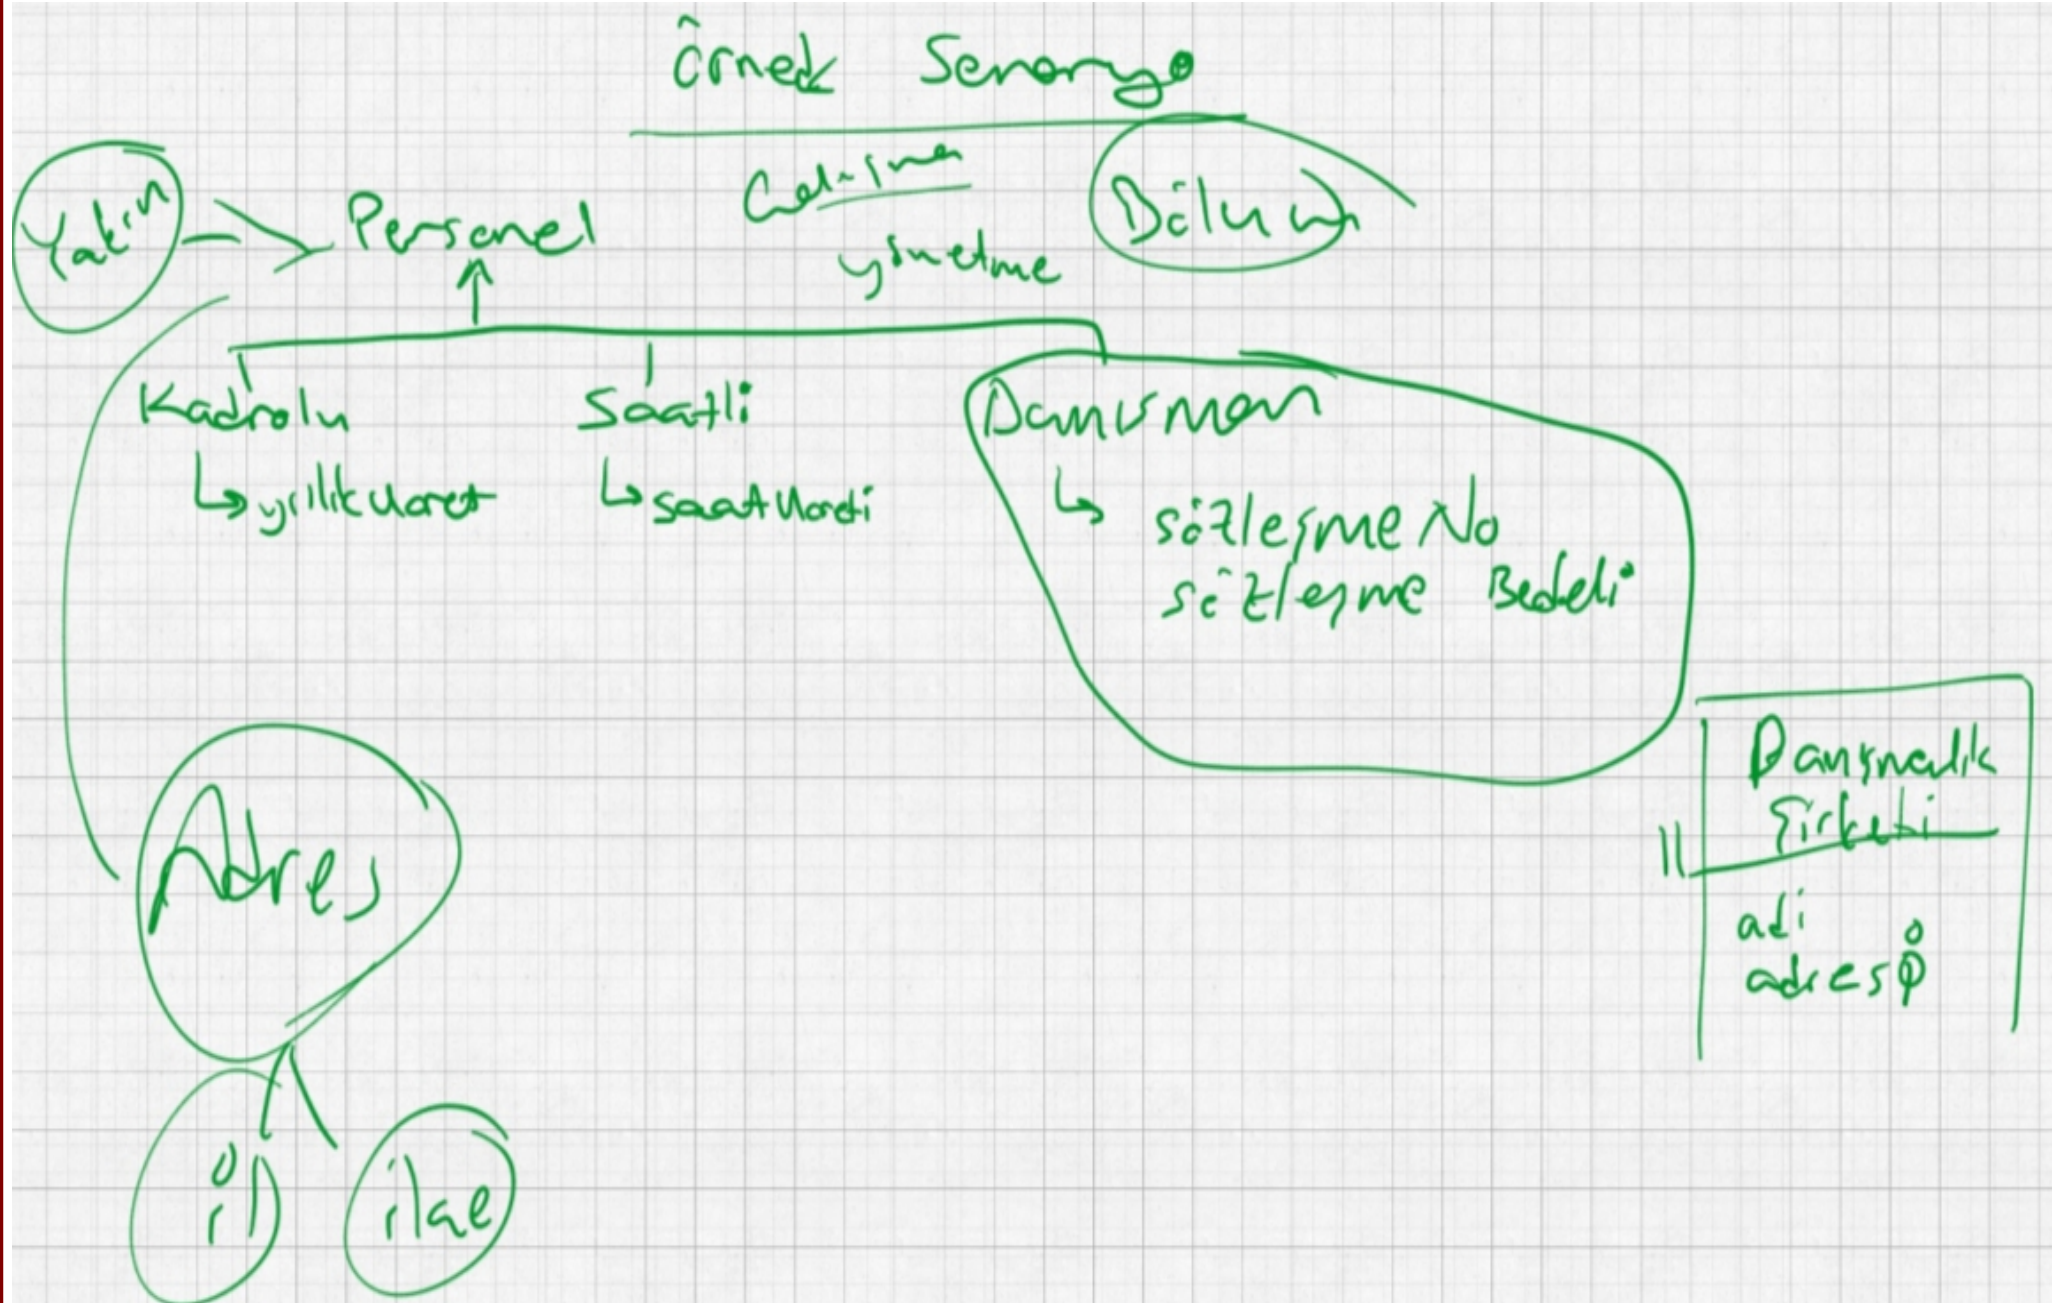 Örnek Senaryo
Yakın
Personel
Çalışma
yönetme
Bölüm
Kadrolu
Saatli
Danışman
yıllık ücret
saat ücreti
sözleşme No
sözleşme Bedeli
Danışmanlık
Şirketi
adi
adres
Adres
il
ilçe